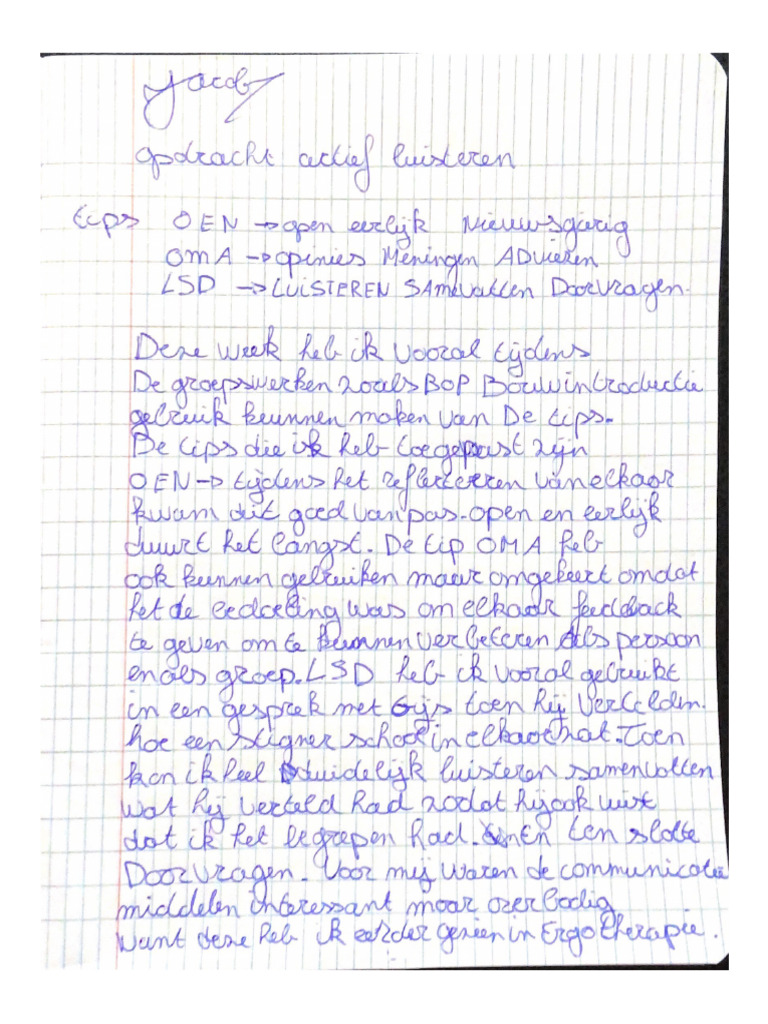 Jacob
opdracht actief luisteren
tips OEN → open eerlijk Nieuwsgirig
OMA → opinies Meningen ADviezen
LSD → LUISTEREN SAMEvatten Doorvragen.
Deze week heb ik vooral tijdens
De groepswerken zoals BOP Bouwintroductie
gebruik kunnen maken van De tips.
De tips die ik heb toegepast zijn
OEN → tijdens het reflecteren van elkaar
kwam dit goed van pas. open en eerlijk
duurt het langst. De tip OMA heb
ook kunnen gebruiken maar omgekeert omdat
het de bedoeling was om elkaar feedback
te geven om te kunnen verbeteren Als persoon
en als groep. LSD heb ik vooral gebruikt
in een gesprek met Gijs toen hij vertelden.
hoe een stigner school in elkaar zat. Toen
kon ik heel duidelijk luisteren samenvatten
wat hij verteld had zodat hij ook wist
dat ik het begrepen had. EN ten slotte
Doorvragen. Voor mij waren de communicatie
middelen interessant maar overbodig
want deze heb ik eerder gezien in Ergotherapie.